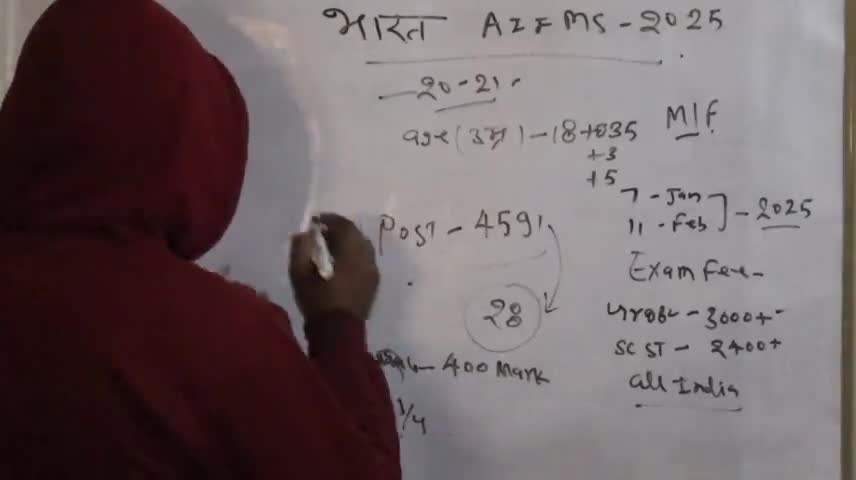 भारत AIFMS - 2025
20-21
age (उम्र) - 18 to 35
+3
+5
M/F
7 - Jan
11 - Feb
- 2025
Post - 4591
28
Exam Fee -
- 3000+
SC ST - 2400+
All India
- 400 Mark
1/4